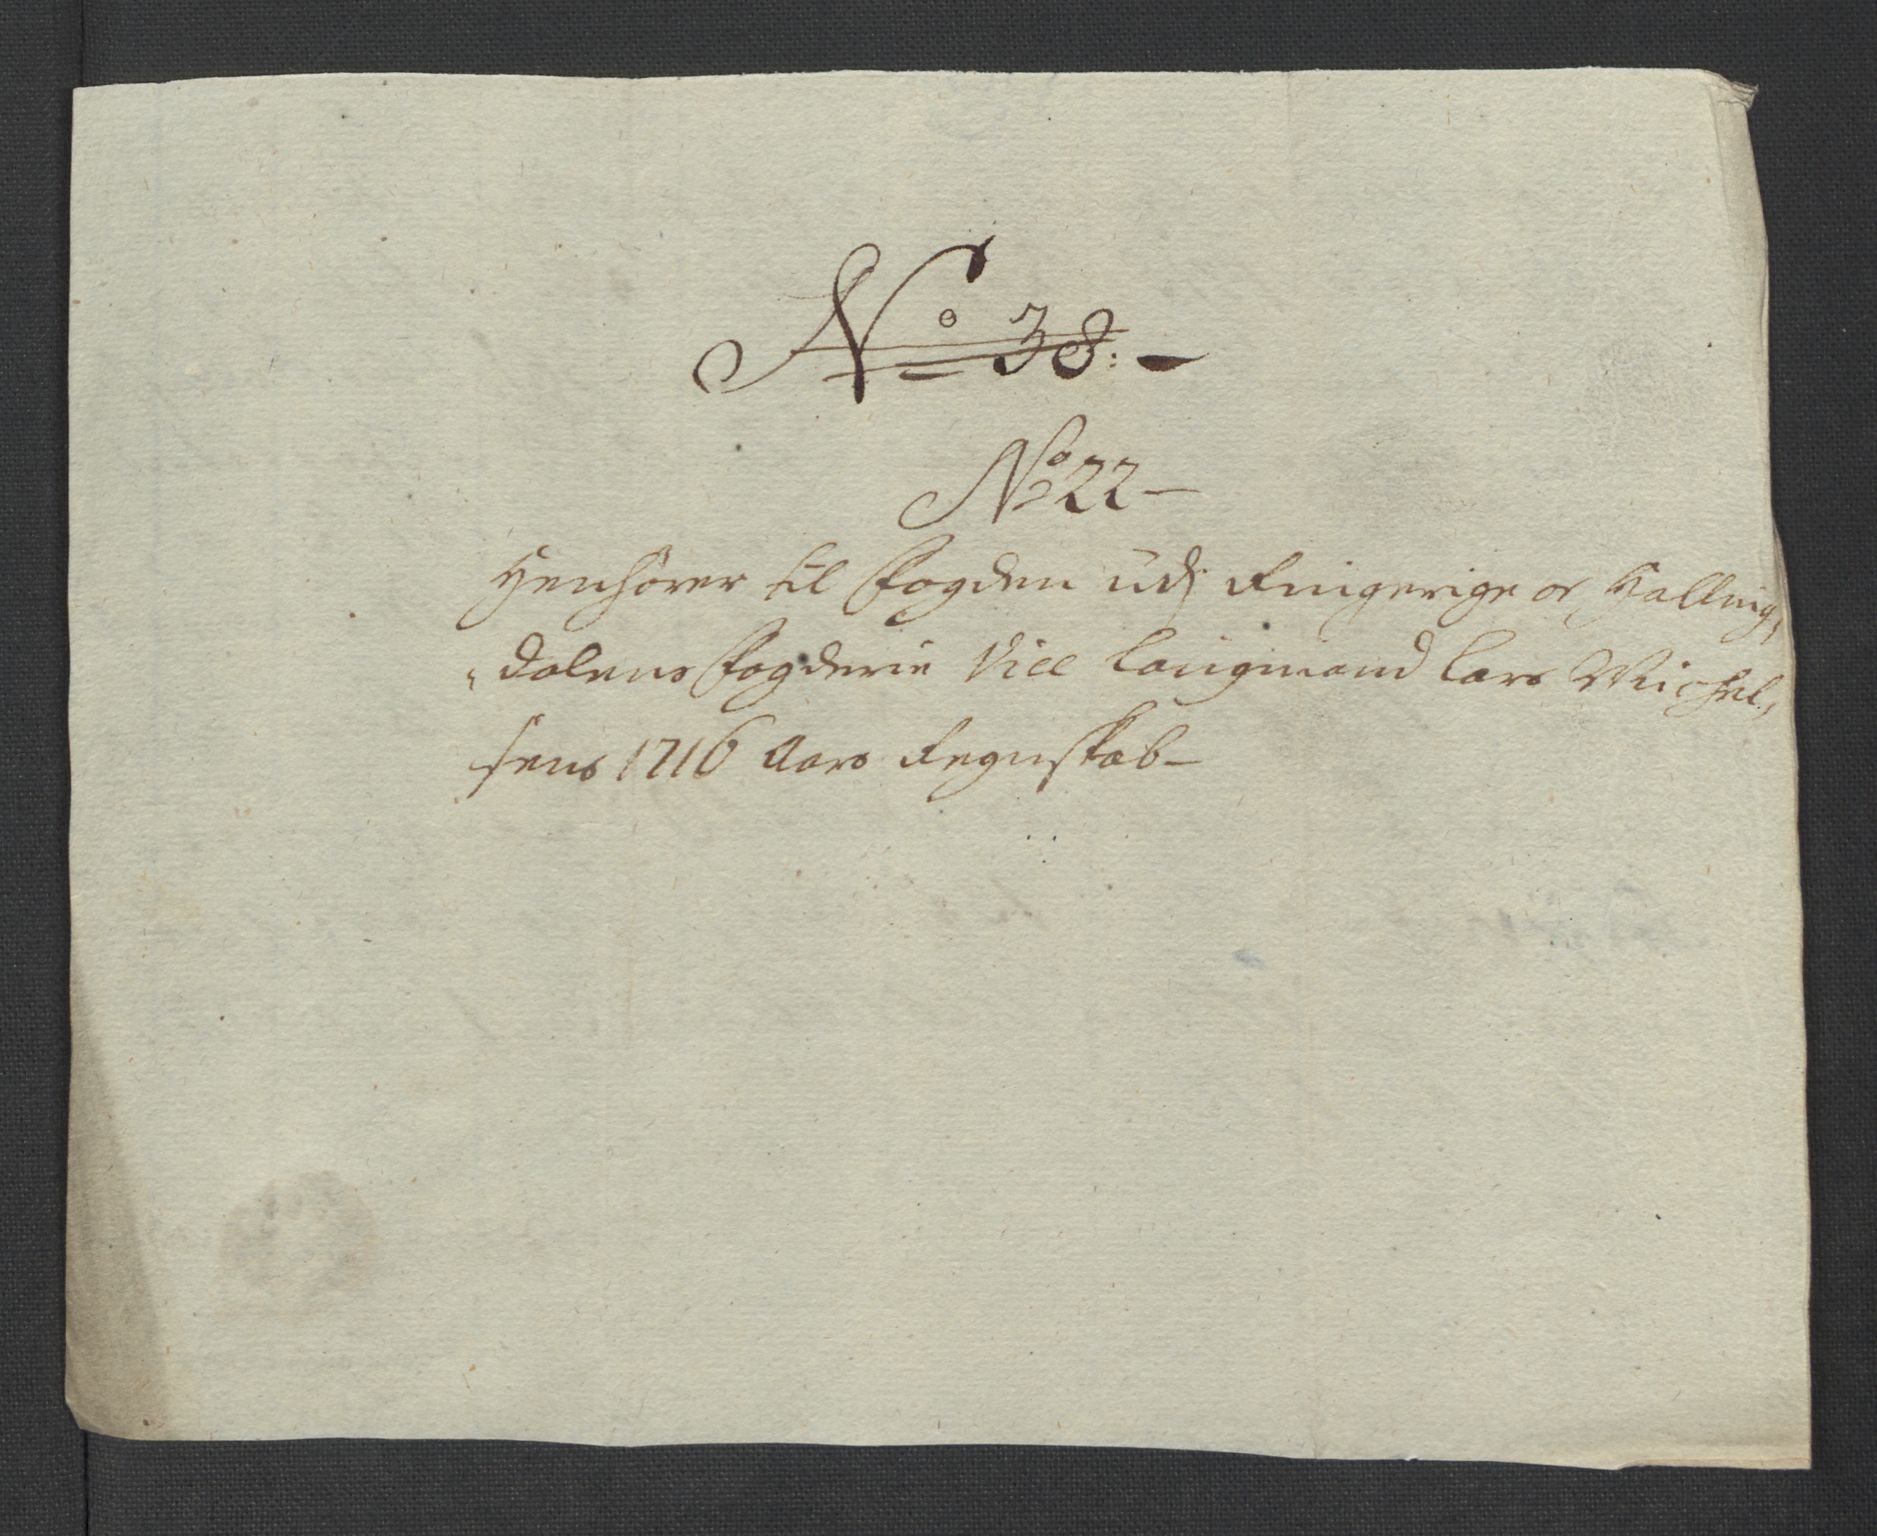 No 38.-
No 22-
Henhører til Fogden udj Ringerige oc Halling,
dalens Fogderie Vice Laugmand Lars Michel,
sens 1716 Aars Regnskab-